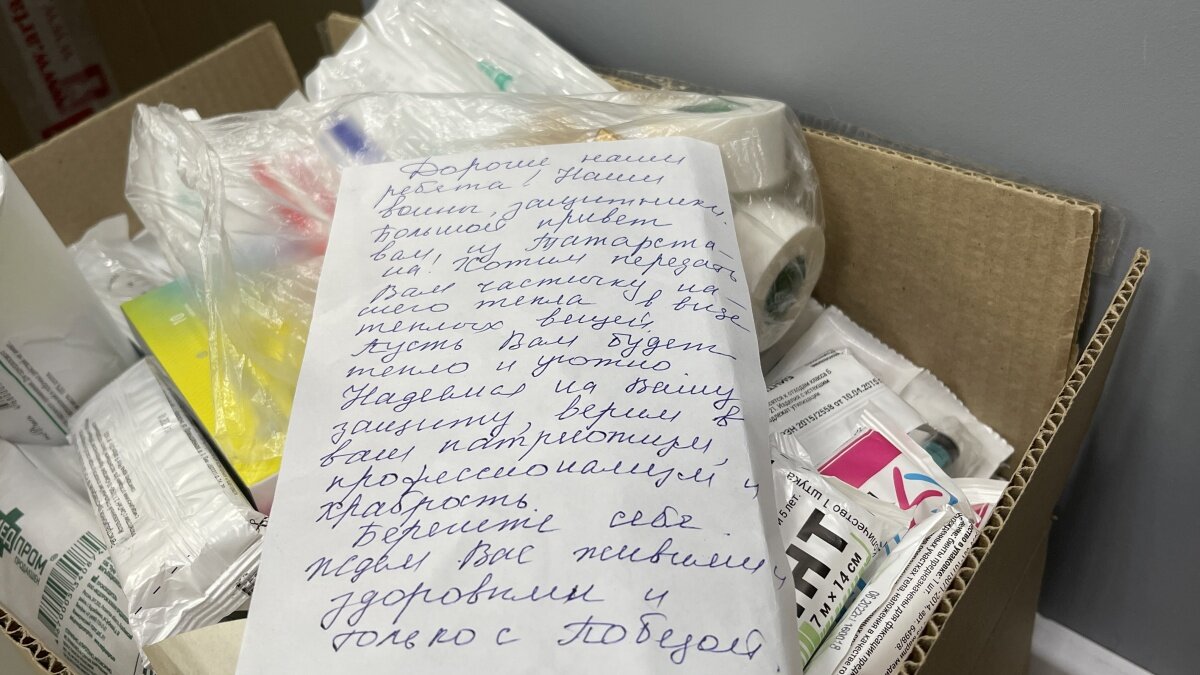 Дорогие наши
ребята! Наши
воины, защитники.
Большой привет
вам из Татарста-
на! Хотим передать
Вам частичку на-
шего тепла в виде
теплых вещей.
Пусть Вам будет
тепло и уютно
Надеемся на Вашу
защиту, верим в
ваш патриотизм,
профессионализм и
храбрость.
Берегите себя
ждем Вас живыми и
здоровыми и
только с Победой.
www.arta
МЕДПРОМ
21. Изделия с истекшим
2015/2558 от 10.04.2015
и 5 лет.
НТ
7 м х 14 см